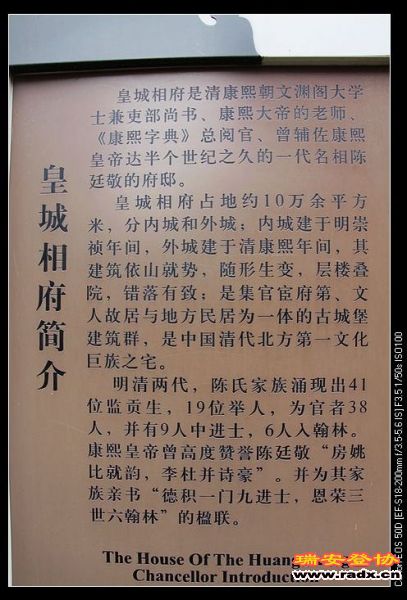 皇城相府简介
皇城相府是清康熙朝文渊阁大学
士兼吏部尚书、康熙大帝的老师、
《康熙字典》总阅官、曾辅佐康熙
皇帝达半个世纪之久的一代名相陈
廷敬的府邸。
皇城相府占地约10万余平方
米，分内城和外城；内城建于明崇
祯年间，外城建于清康熙年间，其
建筑依山就势，随形生变，层楼叠
院，错落有致；是集官宦府第、文
人故居与地方民居为一体的古城堡
建筑群，是中国清代北方第一文化
巨族之宅。
明清两代，陈氏家族涌现出41
位监贡生，19位举人，为官者38
人，并有9人中进士，6人入翰林。
康熙皇帝曾高度赞誉陈廷敬“房姚
比就韵，李杜并诗豪”。并为其家
族亲书“德积一门九进士，恩荣三
世六翰林”的楹联。
The House Of The Huang
Chancellor
瑞安登协
www.radx.cn
EOS 50D [EF-S18-200mm f/3.5-5.6 IS] F3.5 1/50s ISO100